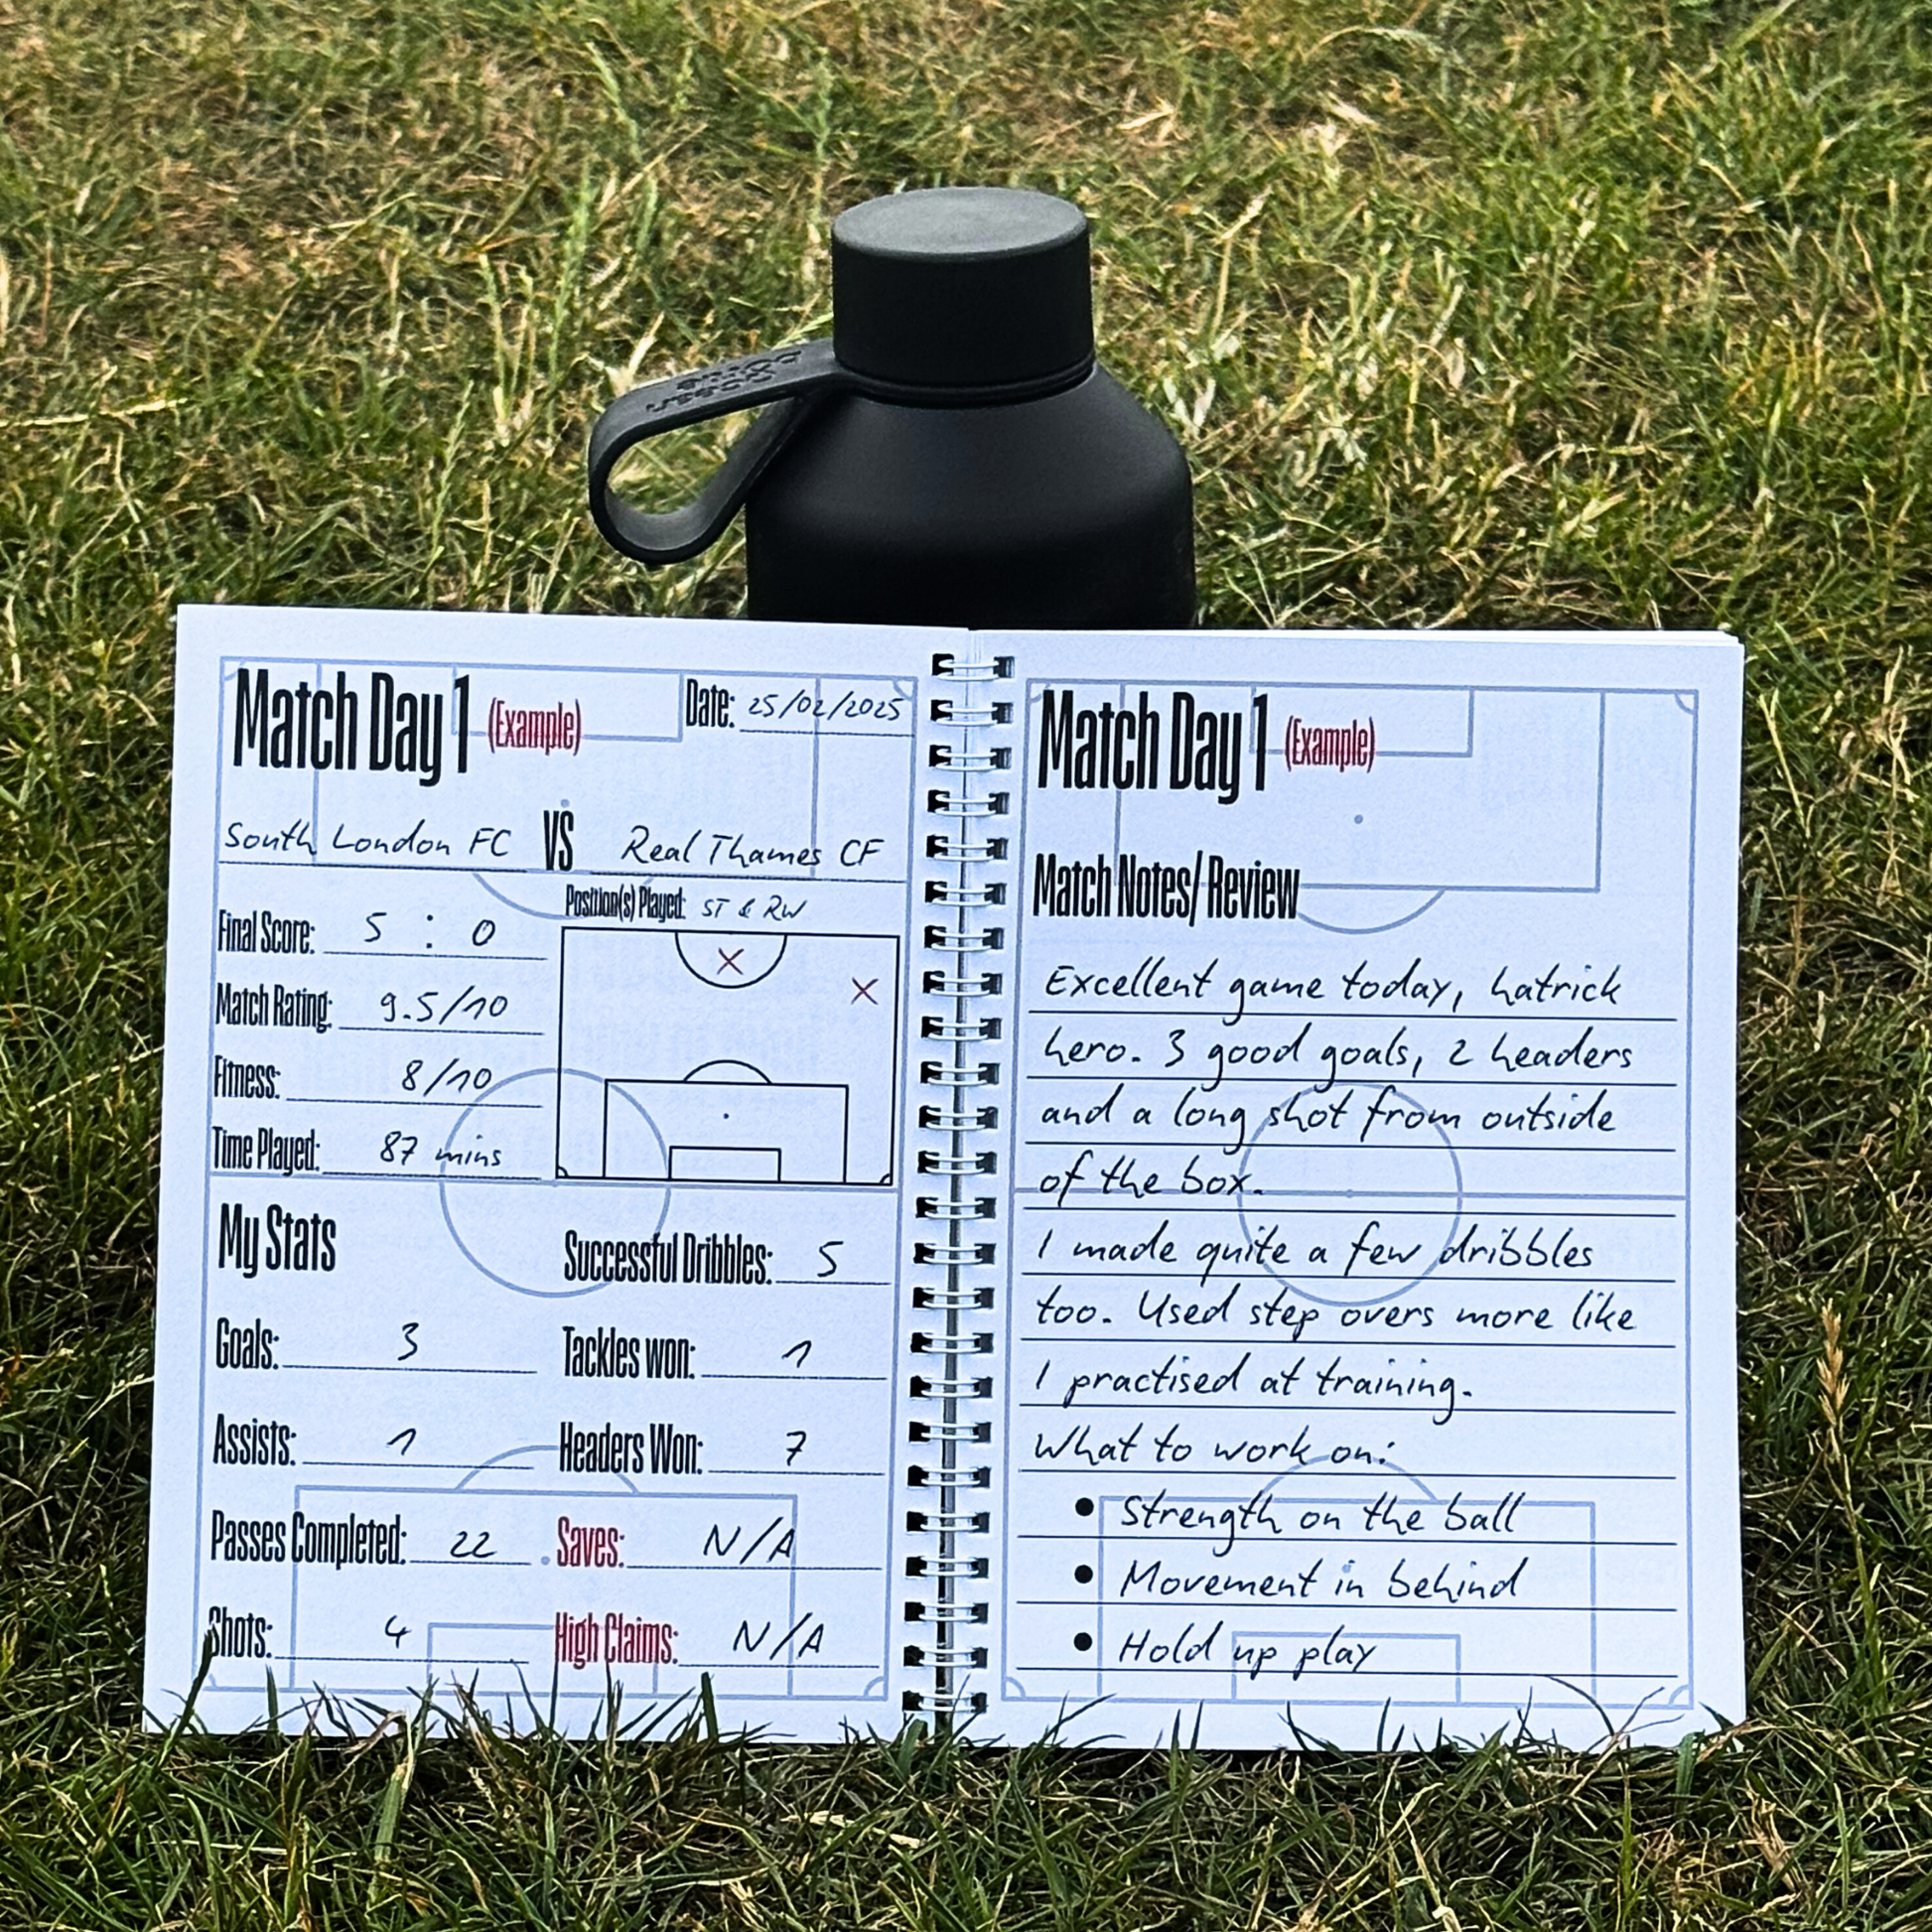 Match Day 1 (Example) Date: 25/02/2025
South London FC VS Real Thames CF
Position(s) Played: ST & RW
Final Score: 5 : 0
Match Rating: 9.5/10
Fitness: 8/10
Time Played: 87 mins
My Stats
Successful Dribbles: 5
Goals: 3
Tackles won: 1
Assists: 1
Headers Won: 7
Passes Completed: 22
Saves: N/A
Shots: 4
High Claims: N/A
Match Day 1 (Example)
Match Notes/ Review
Excellent game today, hatrick
hero. 3 good goals, 2 headers
and a long shot from outside
of the box.
I made quite a few dribbles
too. Used step overs more like
I practised at training.
What to work on:
• Strength on the ball
• Movement in behind
• Hold up play